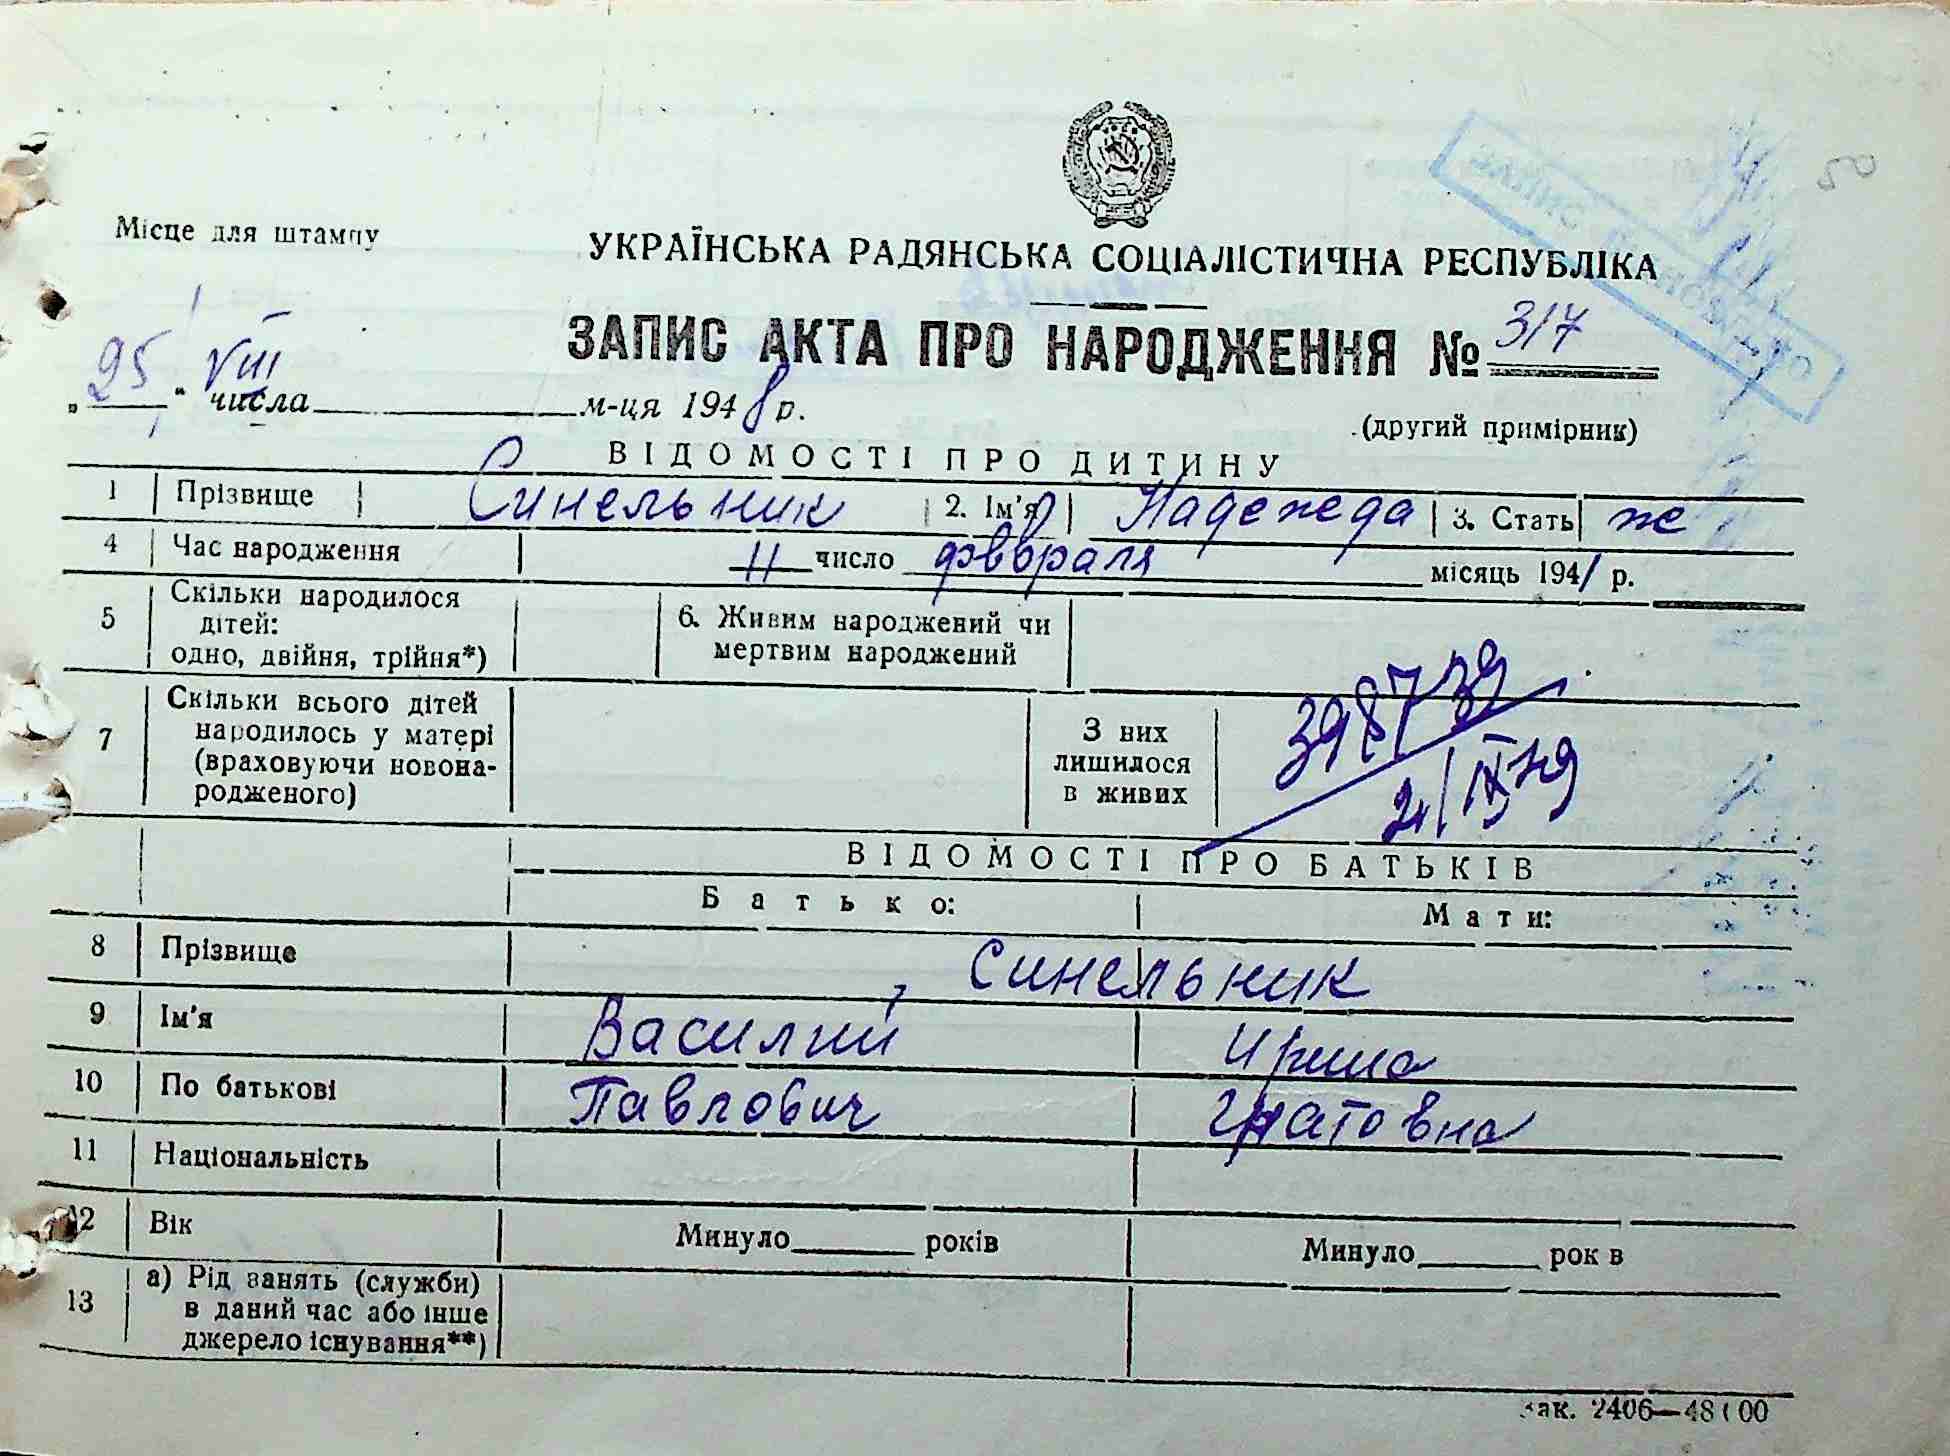 Місце для штампу
УКРАЇНСЬКА РАДЯНСЬКА СОЦІАЛІСТИЧНА РЕСПУБЛІКА
ЗАПИС АКТА ПРО НАРОДЖЕННЯ № 317
„25“ VIII числа м-ця 1948 р.
(другий примірник)
ВІДОМОСТІ ПРО ДИТИНУ
1 Прізвище Синельник 2. Ім'я Надежда 3. Стать ж
4 Час народження 11 число февраля місяць 1941 р.
5 Скільки народилося
дітей:
одно, двійня, трійня*)
6. Живим народжений чи
мертвим народжений
7 Скільки всього дітей
народилось у матері
(враховуючи новона-
родженого)
З них
лишилося
в живих
398739
21/IX 79
ВІДОМОСТІ ПРО БАТЬКІВ
Батько: Мати:
8 Прізвище Синельник
9 Ім'я Василий Ирина
10 По батькові Павлович Игнатовна
11 Національність
12 Вік Минуло____ років Минуло____ рок в
13 а) Рід занять (служби)
в даний час або інше
джерело існування**)
зак. 2406—48